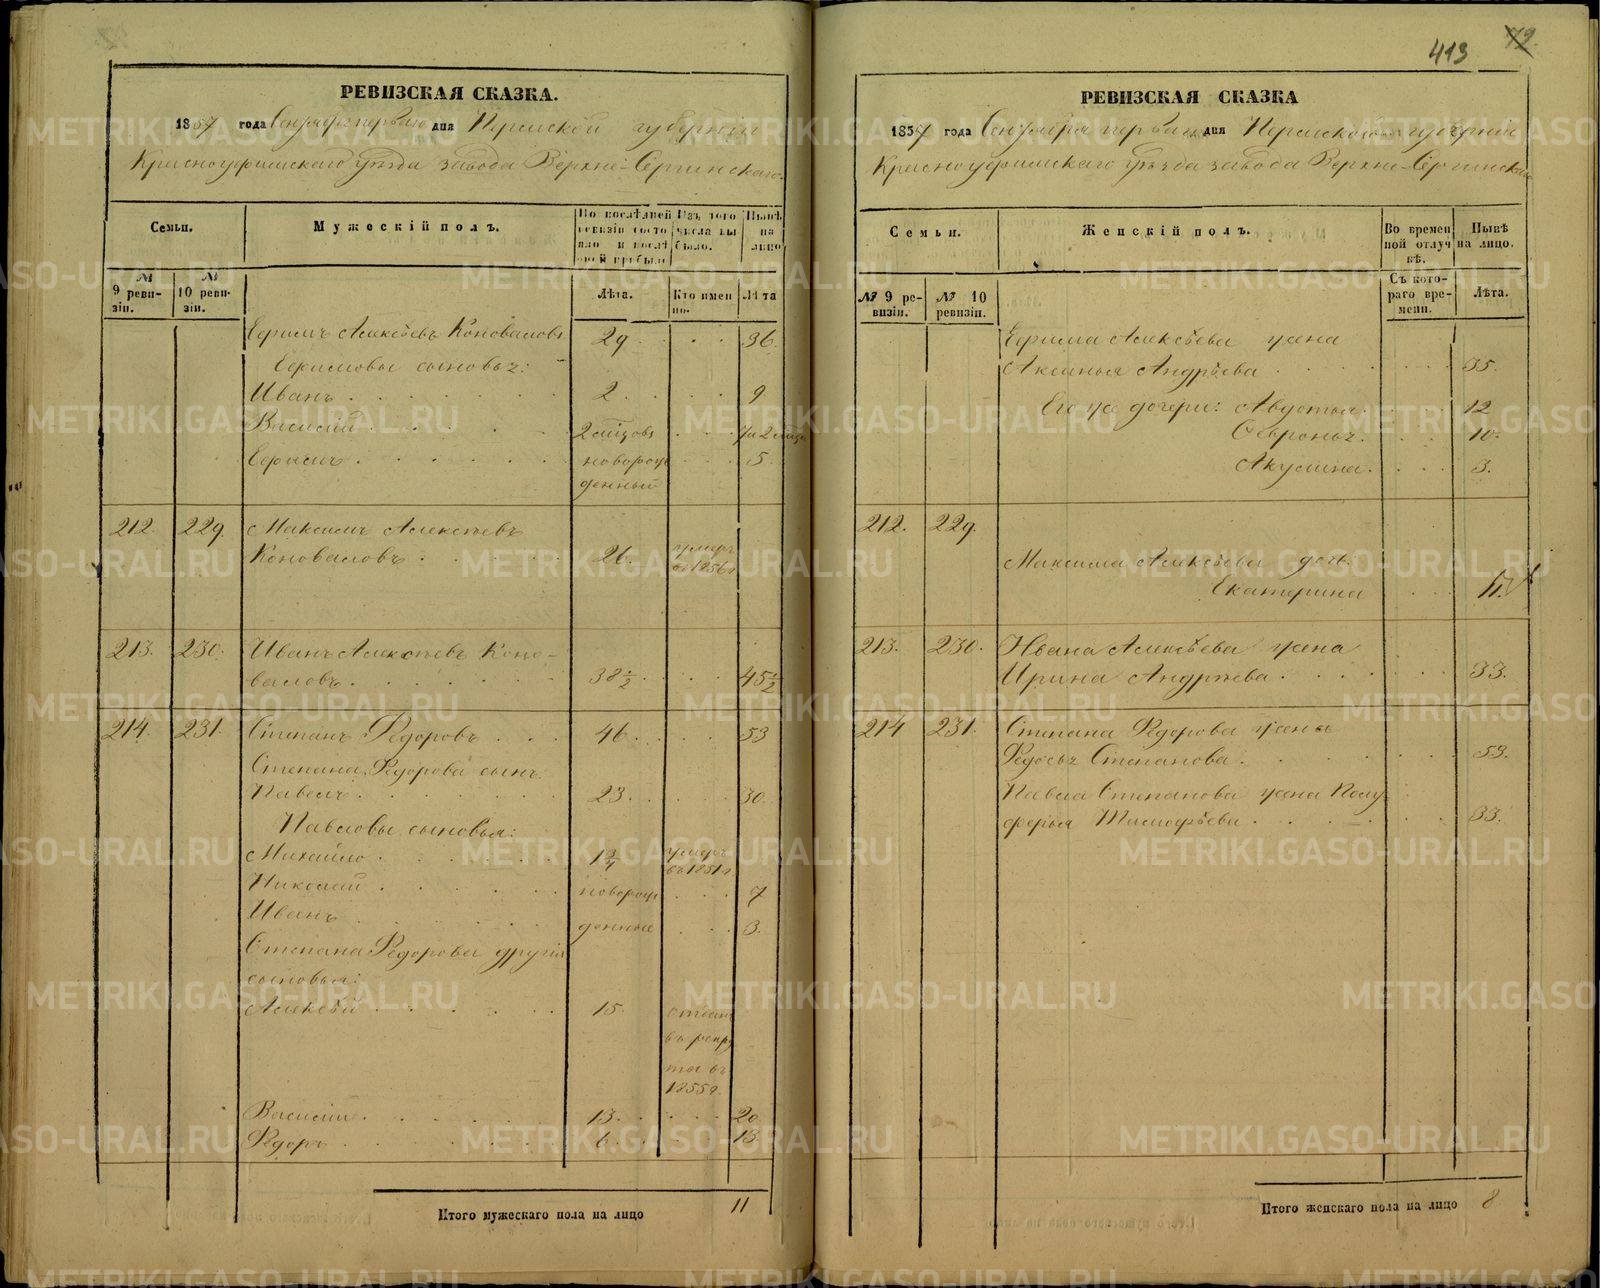 413
72
РЕВИЗСКАЯ СКАЗКА.
1857 года Сентября перваго дня Пермской губерніи
Красноуфимскаго уѣзда завода Верхне-Сергинскаго.
Семьи.
Мужескій полъ.
Во послѣдней ревизіи состояло и послѣ оной прибыло
Изъ того числа выбыло.
Нынѣ на лицо
№ 9 ревизіи.
№ 10 ревизіи.
Лѣта.
Кто именно.
Лѣта
Ефимъ Алексѣевъ Коноваловъ 29 36.
Ефимовы сыновья:
Иванъ 2 9
Василій
Герасимъ новорожденный 5.
212. 229. Максимъ Алексѣевъ
Коноваловъ 26. умеръ въ 1856 г
213. 230. Иванъ Алексѣевъ Коно-
валовъ 38 1/2 45 1/2
214. 231. Степанъ Ѳедоровъ 46 53
Степана Ѳедорова сынъ
Павелъ 23 30.
Павловы сыновья:
Михайло 1 3/4 умеръ въ 1851 г
Николай новорож 7
Иванъ денные 3.
Степана Ѳедорова другіе
сыновья:
Алексѣй 15. отдан въ рекруты въ 1855 г.
Василій 13. 20
Ѳедоръ 6. 13
Итого мужескаго пола на лицо 11
РЕВИЗСКАЯ СКАЗКА
1857 года Сентября перваго дня Пермской губерніи
Красноуфимскаго уѣзда завода Верхне-Сергинскаго
Семьи.
Женскій полъ.
Во временной отлучкѣ.
Нынѣ на лицо.
№ 9 ревизіи.
№ 10 ревизіи.
Съ котораго времени.
Лѣта.
Ефима Алексѣева жена
Аксинья Андрѣева 35.
Его же дочери: Авдотья 12
Февронья 10.
Акулина. 3.
212. 229.
Максима Алексѣева дочь
Екатерина 11.
213. 230. Ивана Алексѣева жена
Ирина Андрѣева 33.
214 231. Степана Ѳедорова жена
Ѳедосья Степанова 53.
Павла Степанова жена Полу
ферья Тимофѣева 33.
Итого женскаго пола на лицо 8
METRIKI.GASO-URAL.RU